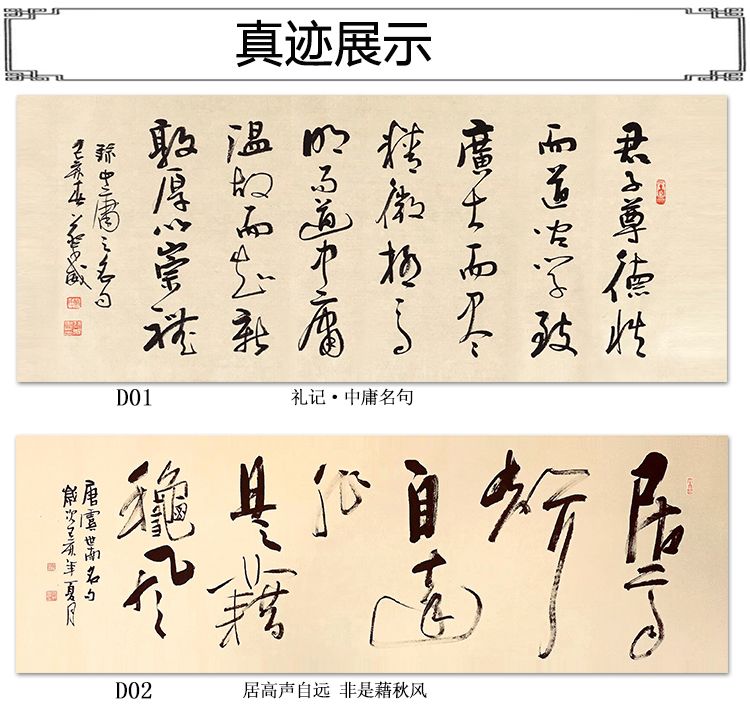 真迹展示
君子尊德性
而道问学致
廣大而尽
精微極高
明而道中庸
温故而知新
敦厚以崇禮
録中庸之名句
己亥春
D01
礼记·中庸名句
居高
声
自遠
非
是藉
穐风
唐虞世南名句
歲次己亥年夏月
D02
居高声自远 非是藉秋风